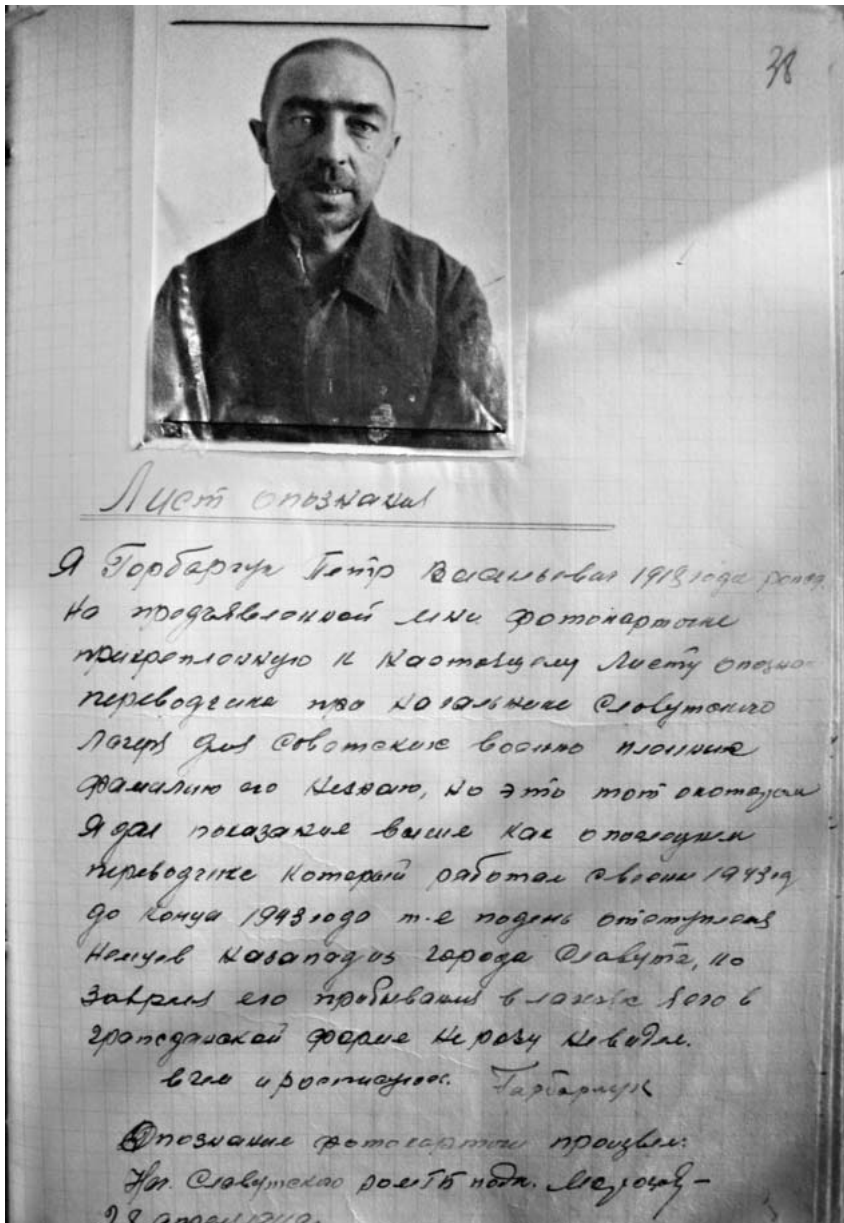 38
Лист опознания
Я Горбарчук Петр Васильевич 1913 года рожд.
на продъявлонной мни фотокарточке
прикроплонную к настоящему Листу опозна
переводчика при начальнике Славутского
Лагеря для Советских военно пленных
фамалию его незнаю, но это тот о котором
Я дал показание выше как о последнем
переводчике который работал с весны 1943 г
до конца 1943 года т-е подень отступленя
немцев назапад из города Славута, но
завремя его пребывания в лагере я его в
гражданской форме не разу невидел.
в чем и росписуюсь. Гарбарчук
Опознание фотокарточки произвел:
Нач. Славутского
28 апреля